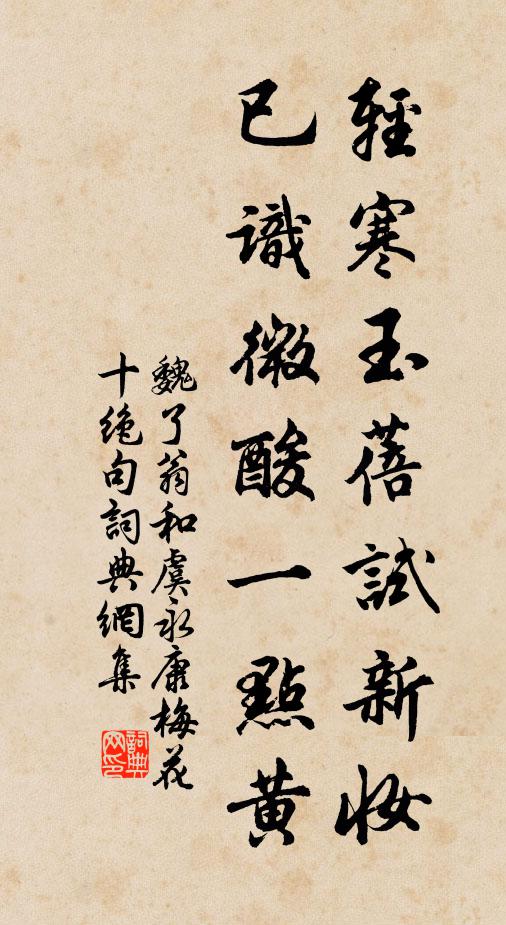 輕寒玉蓓試新妝
已識微酸一點黃
魏了翁和虞永康梅花
十絕句詞典網集
詞典網印